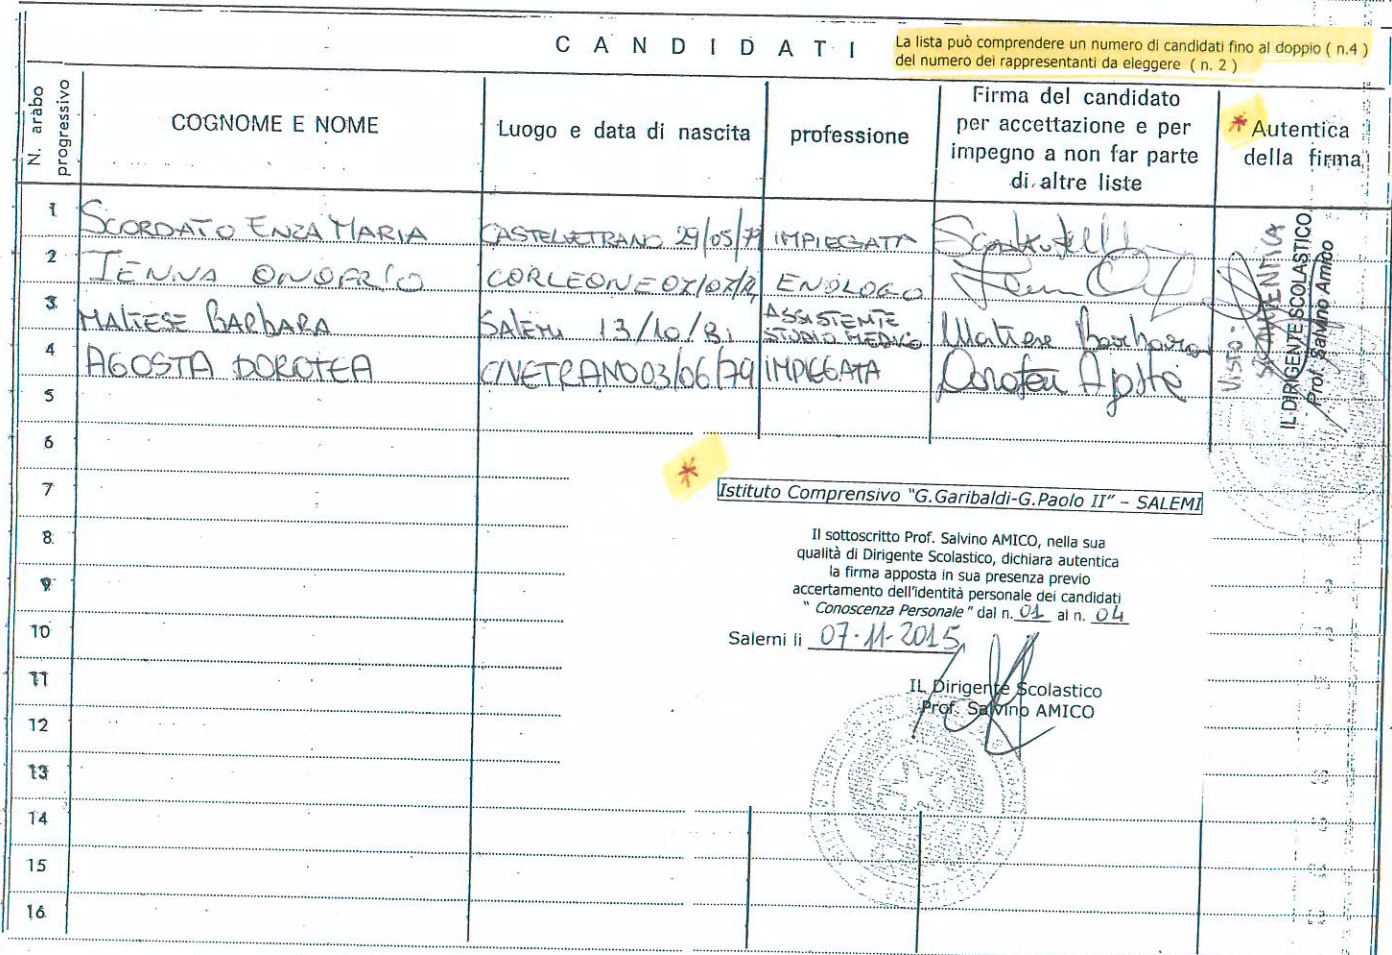 CANDIDATI
La lista può comprendere un numero di candidati fino al doppio ( n.4 )
del numero dei rappresentanti da eleggere ( n. 2 )
N. arabo progressivo
COGNOME E NOME
Luogo e data di nascita
professione
Firma del candidato
per accettazione e per
impegno a non far parte
di altre liste
* Autentica
della firma
1 SCORDATO ENZA MARIA CASTELVETRANO 29/05/79 IMPIEGATA
2 IENNA ONOFRIO CORLEONE ENOLOGO
3 MALTESE BARBARA SALEMI 13/10/81 ASSISTENTE STUDIO MEDICO Maltese Barbara
4 AGOSTA DOROTEA C/VETRANO 03/06/79 IMPIEGATA Dorotea Agosta
VISTO:
IL DIRIGENTE SCOLASTICO
Prof. Salvino Amico
5
6
7
8
9
10
11
12
13
14
15
16
*
Istituto Comprensivo "G.Garibaldi-G.Paolo II" – SALEMI
Il sottoscritto Prof. Salvino AMICO, nella sua
qualità di Dirigente Scolastico, dichiara autentica
la firma apposta in sua presenza previo
accertamento dell'identità personale dei candidati
" Conoscenza Personale " dal n. 01 al n. 04
Salemi li 07-11-2015
IL Dirigente Scolastico
Prof. Salvino AMICO